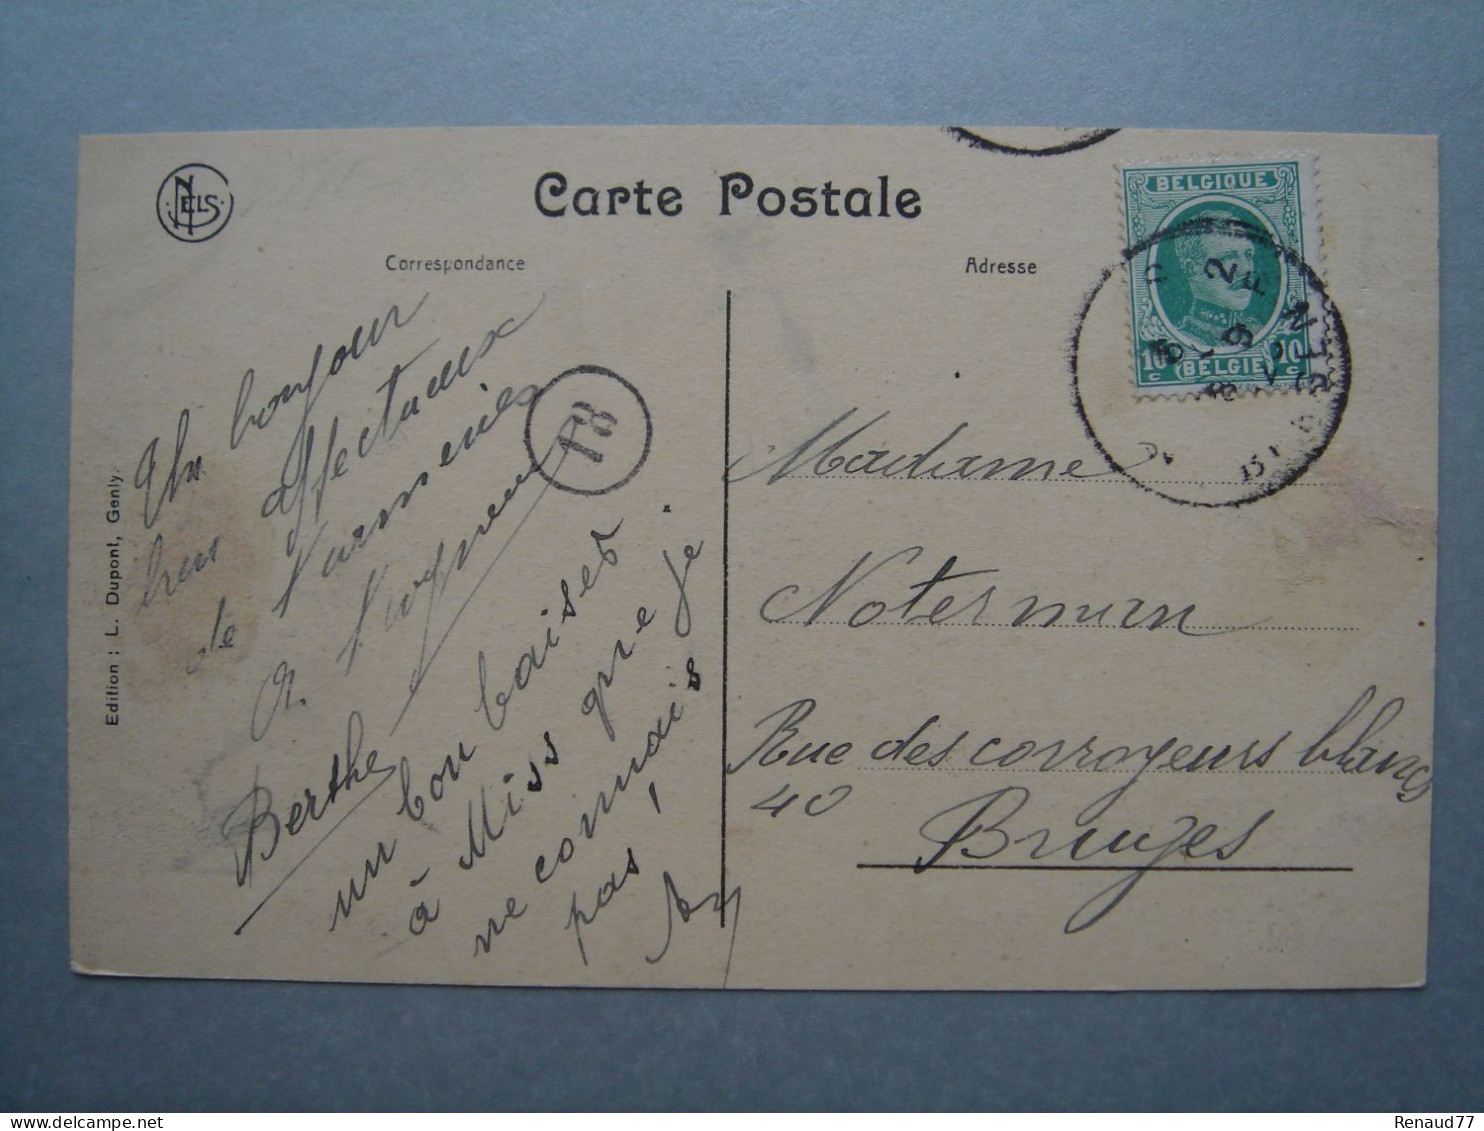 NELS
Carte Postale
Correspondance
Adresse
BELGIQUE
10 c BELGIË 10 c
Edition : L. Dupont, Genly.
18
Un bonjour
bien affectueux
de
à
Berthe
un bon baiser
à Miss que je
ne connais
pas!
Madame
Noterman
Rue des corroyeurs blancs
40
Bruges
Renaud77